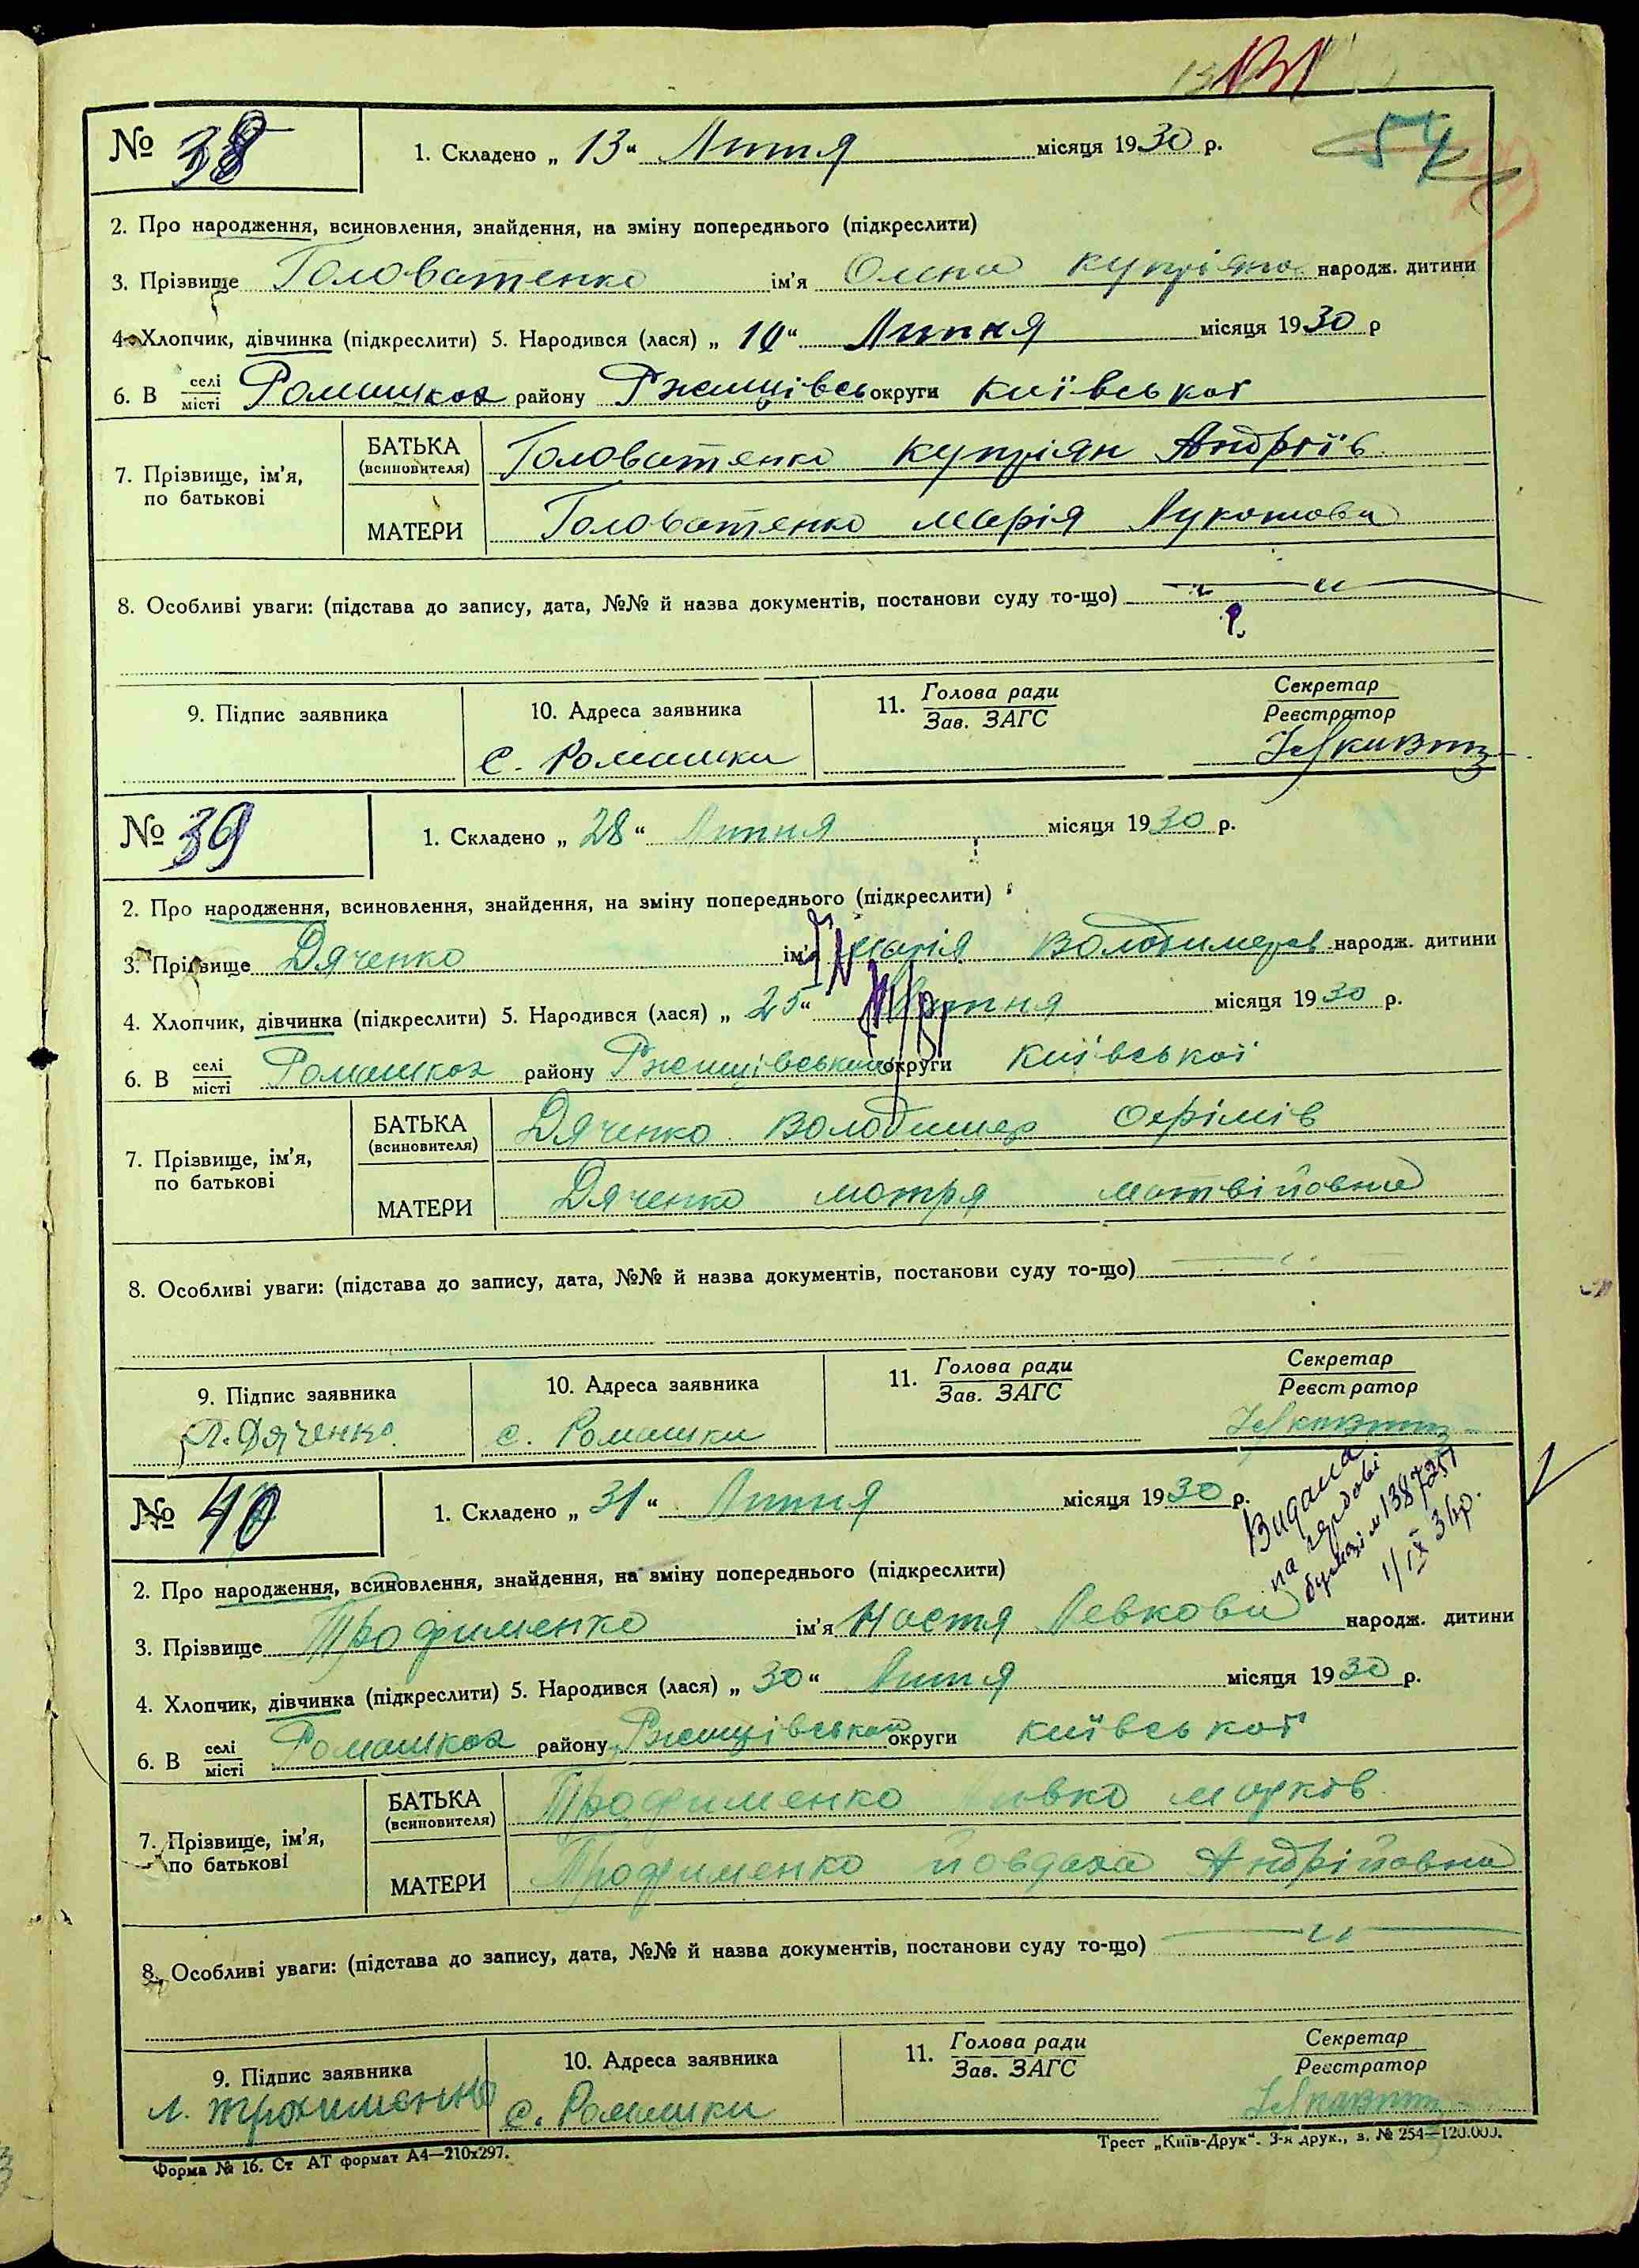 131
54
№ 38
1. Складено „ 13 “ Липня місяця 1930 р.
2. Про народження, всиновлення, знайдення, на зміну попереднього (підкреслити)
3. Прізвище Головатенко ім'я Олена народж. дитини
4. Хлопчик, дівчинка (підкреслити) 5. Народився (лася) „ 10 “ Липня місяця 1930 р
6. В селі місті Ромашках району Ржищівськ округи Київської
7. Прізвище, ім'я, по батькові
БАТЬКА (всиновителя) Головатенко Купріян Андріїв
МАТЕРИ Головатенко Марія
8. Особливі уваги: (підстава до запису, дата, №№ й назва документів, постанови суду то-що)
9. Підпис заявника
10. Адреса заявника
11. Голова ради Зав. ЗАГС
Секретар Реєстратор
с. Ромашки
№ 39
1. Складено „ 28 “ Липня місяця 1930 р.
2. Про народження, всиновлення, знайдення, на зміну попереднього (підкреслити)
3. Прізвище Дяченко ім'я Марія народж. дитини
4. Хлопчик, дівчинка (підкреслити) 5. Народився (лася) „ 25 “ Липня місяця 1930 р.
6. В селі місті Ромашках району Ржищівської округи Київської
7. Прізвище, ім'я, по батькові
БАТЬКА (всиновителя) Дяченко Володимер Охрімів
МАТЕРИ Дяченко мотря матвійовна
8. Особливі уваги: (підстава до запису, дата, №№ й назва документів, постанови суду то-що)
9. Підпис заявника
10. Адреса заявника
11. Голова ради Зав. ЗАГС
Секретар Реєстратор
Дяченко
с. Ромашки
№ 40
1. Складено „ 31 “ Липня місяця 1930 р.
Видана
на
№ 1387251
1/IX 31р.
2. Про народження, всиновлення, знайдення, на зміну попереднього (підкреслити)
3. Прізвище Трофименко ім'я Настя Левкова народж. дитини
4. Хлопчик, дівчинка (підкреслити) 5. Народився (лася) „ 30 “ Липня місяця 1930 р.
6. В селі місті Ромашках району Ржищівської округи Київської
7. Прізвище, ім'я, по батькові
БАТЬКА (всиновителя) Трофименко Левко марков
МАТЕРИ Трофименко Йовдоха Андрійовна
8. Особливі уваги: (підстава до запису, дата, №№ й назва документів, постанови суду то-що)
9. Підпис заявника
10. Адреса заявника
11. Голова ради Зав. ЗАГС
Секретар Реєстратор
Л. Трохименко
с. Ромашки
Форма № 16. Ст АТ формат А4—210х297.
Трест „Київ-Друк“. 3-я друк., з. № 254—120.000.